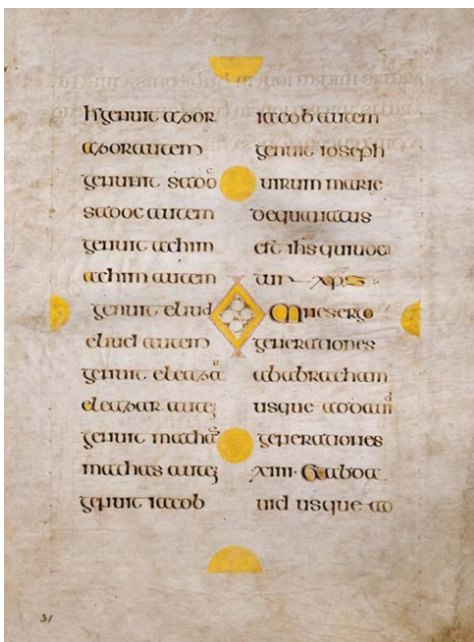 h genuit azor
azor autem
genuit sadoc
sadoc autem
genuit achim
achim autem
genuit eliud
eliud autem
genuit eleazar
eleazar autē
genuit mathas
mathas autē
genuit iacob
iacob autem
genuit ioseph
uirum marie
dequa natus
est ihs quiuoca
tur xps
Omnes ergo
generationes
ababracham
usque addauid
generationes
xiiii · Et abda
uid usque ad
31